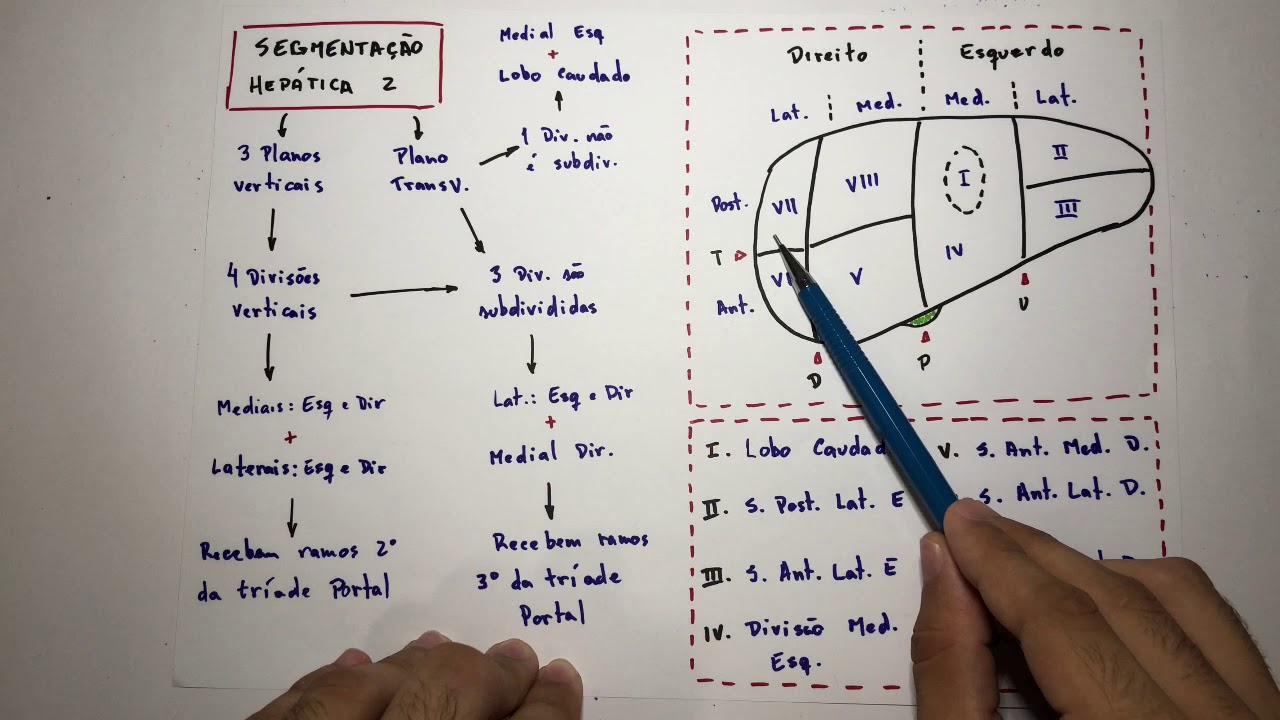 SEGMENTAÇÃO
HEPÁTICA 2
3 Planos
verticais
4 Divisões
verticais
Mediais: Esq e Dir
+
Laterais: Esq e Dir
Recebem ramos 2º
da tríade Portal
Plano
Transv.
1 Div. não
é subdiv.
Medial Esq
+
Lobo Caudado
3 Div. são
subdivididas
Lat.: Esq e Dir
+
Medial Dir.
Recebem ramos
3º da tríade
Portal
Direito
Esquerdo
Lat.
Med.
Med.
Lat.
Post.
T
Ant.
VII
VIII
I
II
III
IV
V
D
P
U
I. Lobo
II. S. Post. Lat. E
III. S. Ant. Lat. E
IV. Divisão Med.
Esq.
V. S. Ant. Med. D.
S. Ant. Lat. D.